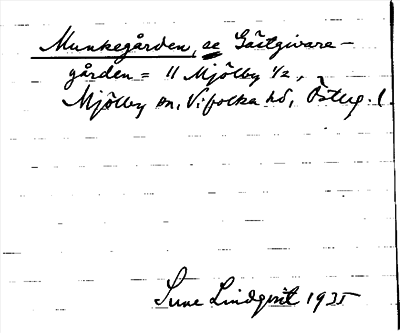 Munkegården, se Gästgivare-
gården = 11 Mjölby 1/2,
Mjölby sn, Vifolka hd, Östlg. l.
Sune Lindqvist 1935